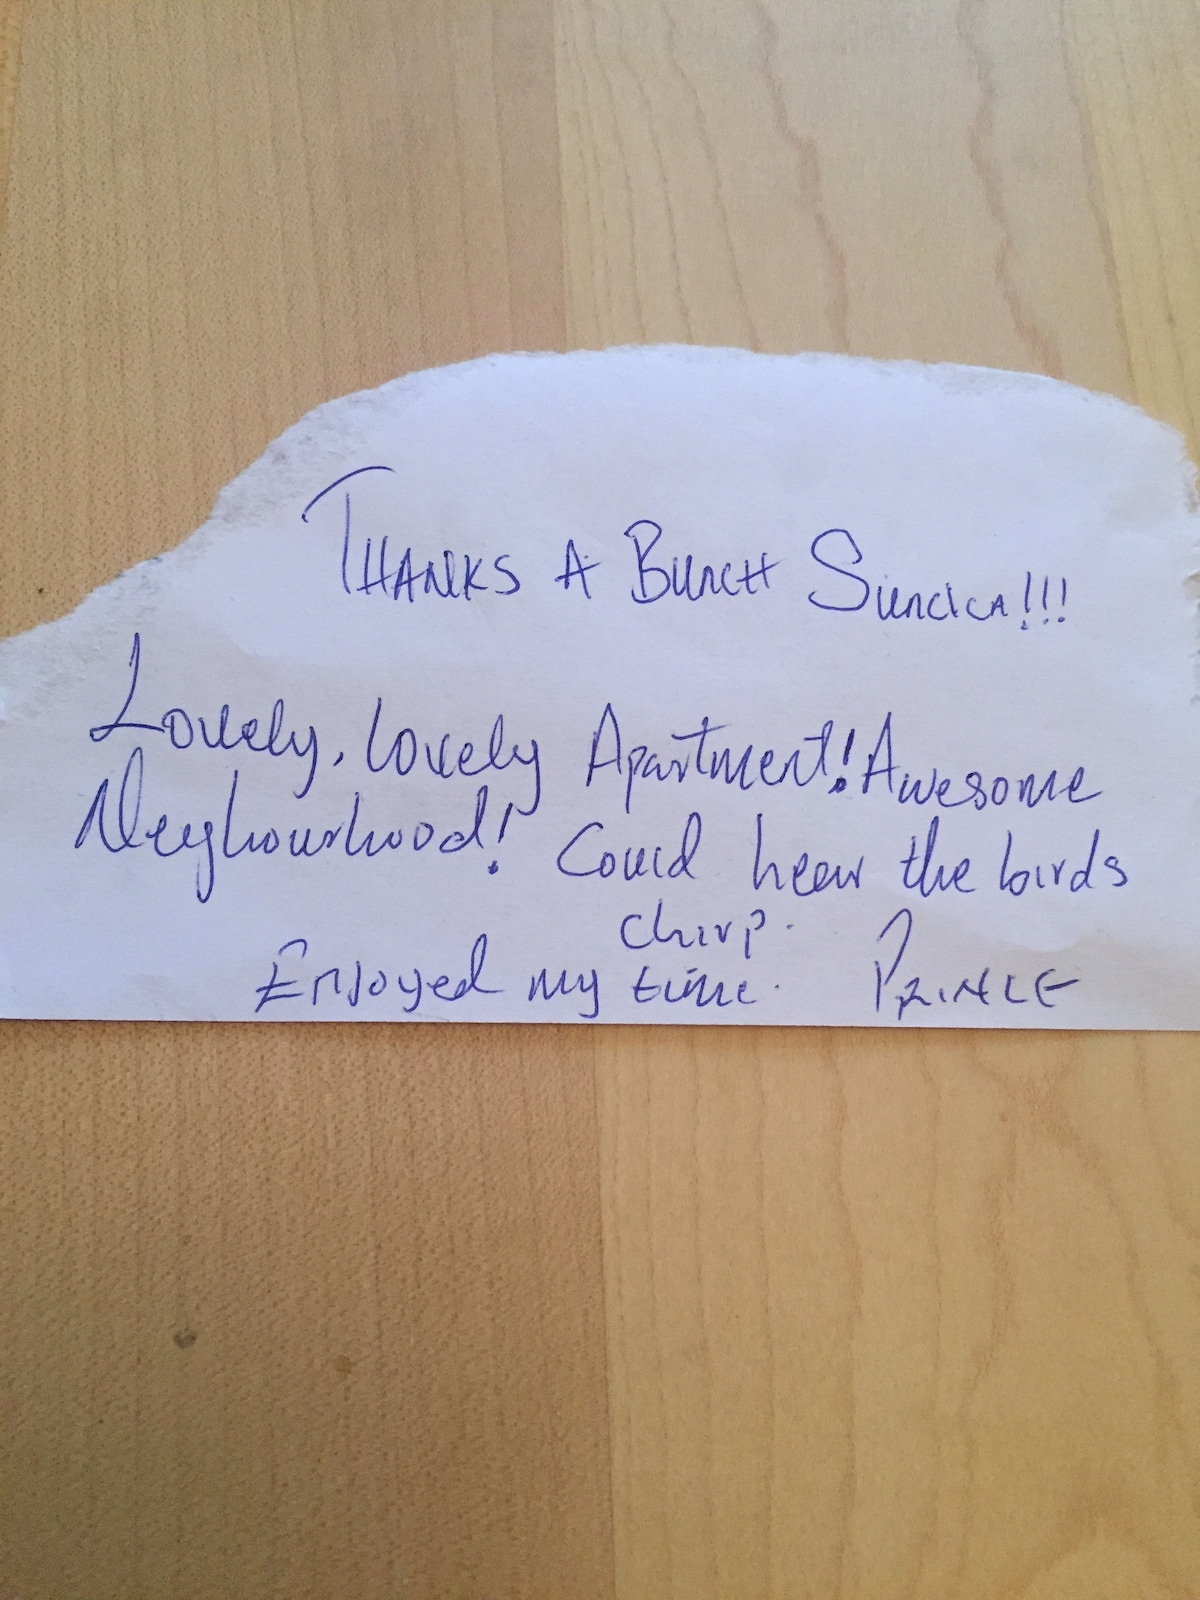 THANKS A BUNCH SUNCICA!!!
Lovely, lovely Apartment! Awesome
Neighourhood! Could hear the birds
chirp.
Enjoyed my time. PRINCE